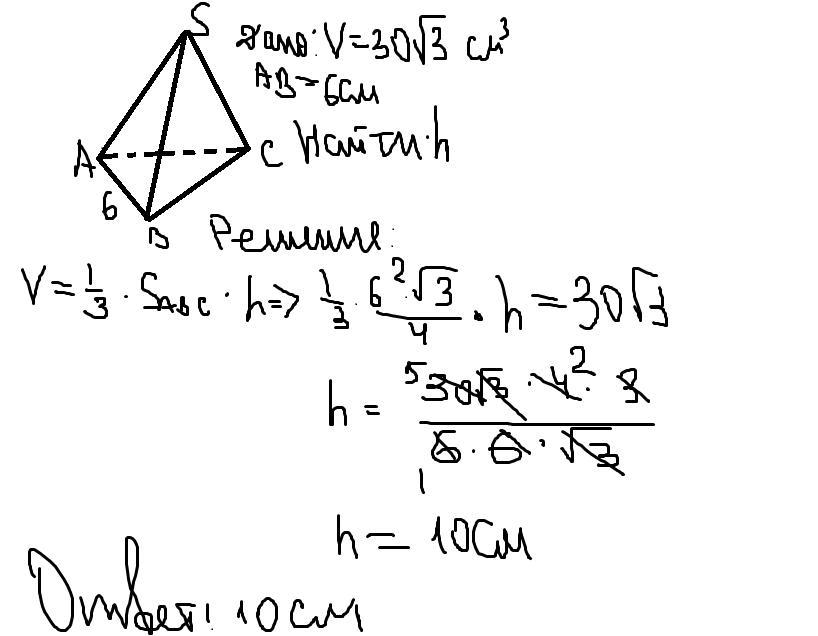 S
Дано: V=30√3 см³
AB=6см
A
C
Найти: h
6
B
Решение:
V = 1/3 · S_ABC · h => 1/3 · 6²·√3/4 · h = 30√3
h = ⁵30√3 · 4² · 3 / 6 · 6 · √3
1
h = 10см
Ответ: 10см